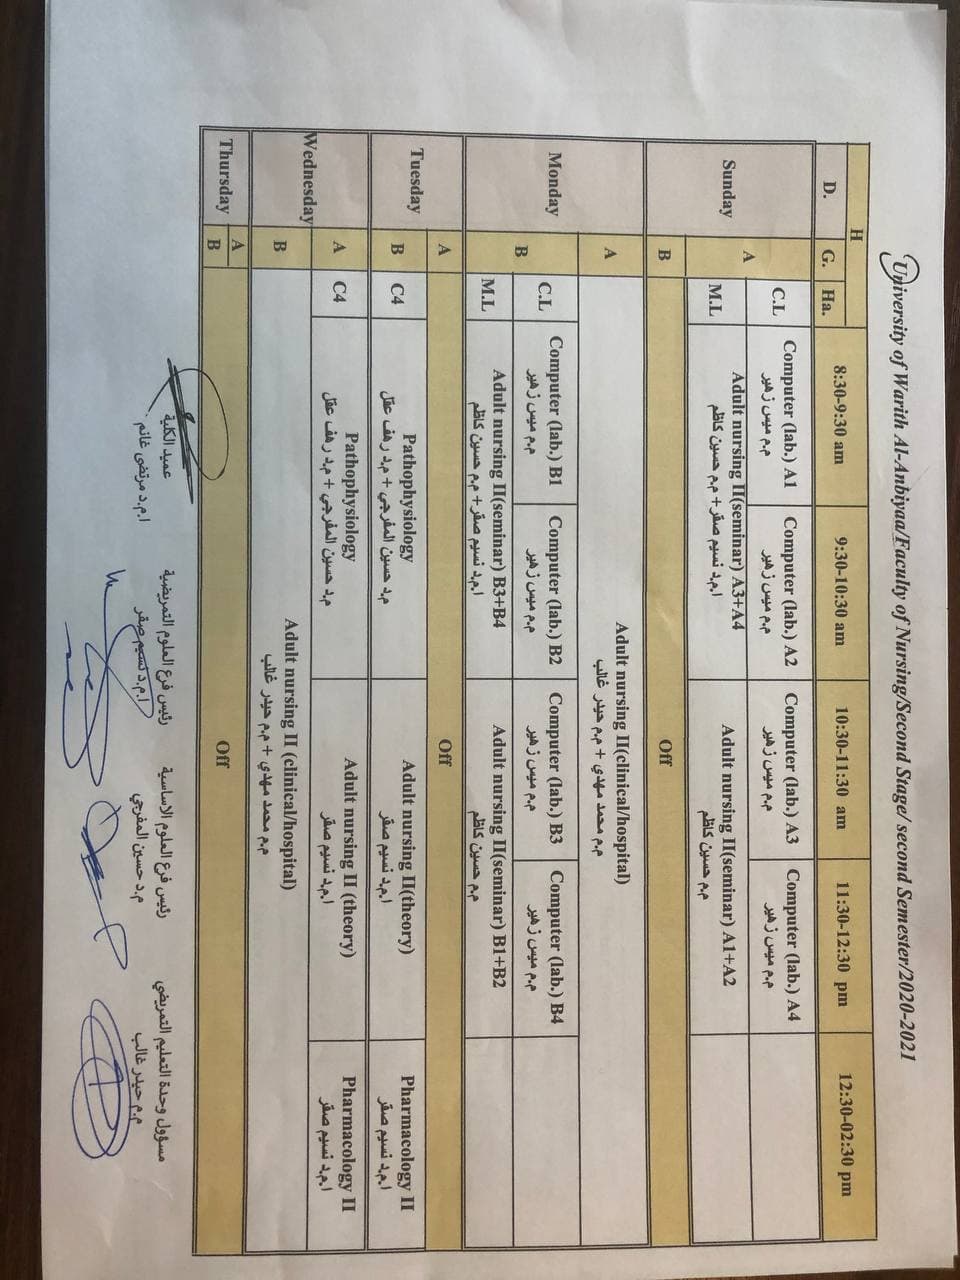 University of Warith Al-Anbiyaa/Faculty of Nursing/Second Stage/ second Semester/2020-2021
H
D. G. Ha. 8:30-9:30 am 9:30-10:30 am 10:30-11:30 am 11:30-12:30 pm 12:30-02:30 pm
Sunday
A
C.L
Computer (lab.) A1
م.م ميس زهير
Computer (lab.) A2
م.م ميس زهير
Computer (lab.) A3
م.م ميس زهير
Computer (lab.) A4
م.م ميس زهير
M.L
Adult nursing II(seminar) A3+A4
ا.م.د نسيم صقر + م.م حسين كاظم
Adult nursing II(seminar) A1+A2
م.م حسين كاظم
B
Off
Monday
A
Adult nursing II(clinical/hospital)
م.م محمد مهدي + م.م حيدر غالب
B
C.L
Computer (lab.) B1
م.م ميس زهير
Computer (lab.) B2
م.م ميس زهير
Computer (lab.) B3
م.م ميس زهير
Computer (lab.) B4
م.م ميس زهير
M.L
Adult nursing II(seminar) B3+B4
ا.م.د نسيم صقر + م.م حسين كاظم
Adult nursing II(seminar) B1+B2
م.م حسين كاظم
Tuesday
A
Off
B
C4
Pathophysiology
م.د حسين المفرجي + م.د رهف عقل
Adult nursing II(theory)
ا.م.د نسيم صقر
Pharmacology II
ا.م.د نسيم صقر
Wednesday
A
C4
Pathophysiology
م.د حسين المفرجي + م.د رهف عقل
Adult nursing II (theory)
ا.م.د نسيم صقر
Pharmacology II
ا.م.د نسيم صقر
B
Adult nursing II (clinical/hospital)
م.م محمد مهدي + م.م حيدر غالب
Thursday
A
B
Off
عميد الكلية
ا.م.د مرتضى غانم
رئيس فرع العلوم التمريضية
ا.م.د نسيم صقر
رئيس فرع العلوم الاساسية
م.د حسين المفرجي
مسؤول وحدة التعليم التمريضي
م.م حيدر غالب